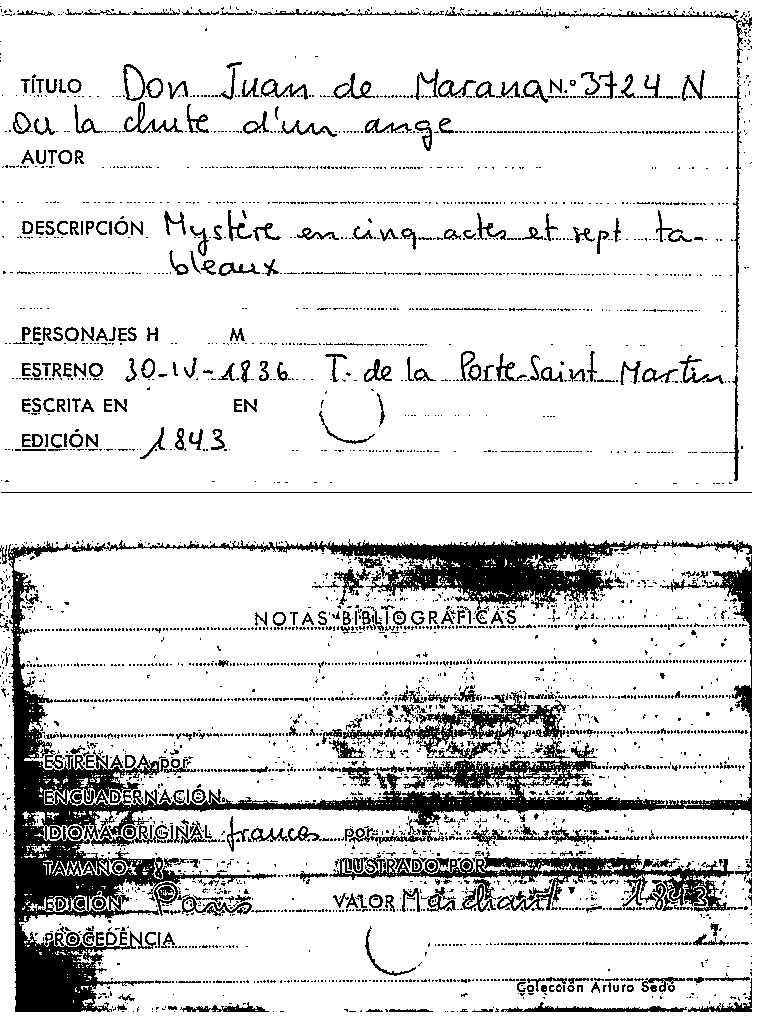 TÍTULO Don Juan de Marana N.º 3724 N
Ou la chute d'un ange
AUTOR
DESCRIPCIÓN Mystère en cinq actes et sept ta-
bleaux
PERSONAJES H M
ESTRENO 30-IV-1836 T. de la Porte-Saint Martin
ESCRITA EN EN
EDICIÓN 1843
NOTAS BIBLIOGRAFICAS
ESTRENADA por
ENCUADERNACIÓN
IDIOMA ORIGINAL frances por
TAMAÑO 8 ILUSTRADO POR
EDICIÓN Paris VALOR Marchant 1843
PROCEDENCIA
Colección Arturo Sedó